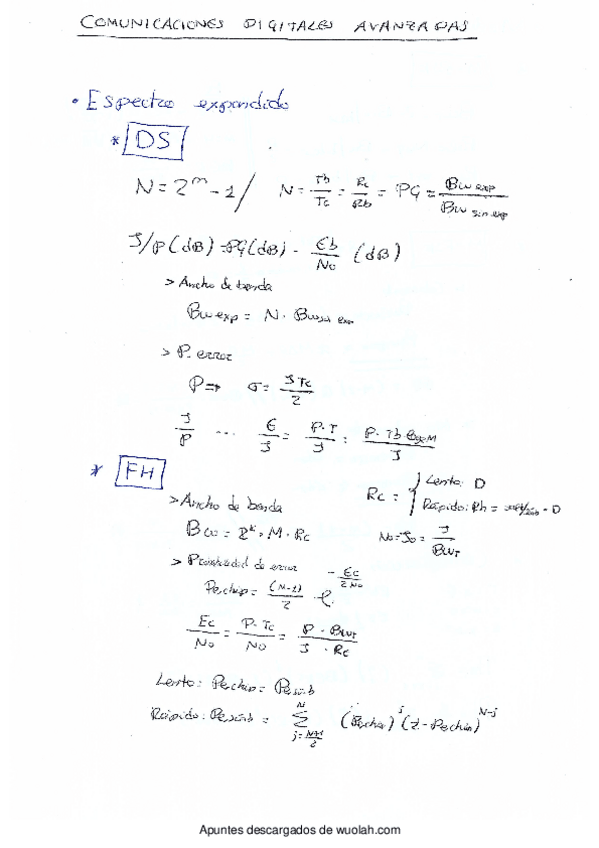 COMUNICACIONES DIGITALES AVANZADAS
• Espectro expandido
* DS
N = 2^m - 1 / N = Tb/Tc = Rc/Rb = PG = Bw exp/Bw sin exp
J/P (dB) = PG(dB) - Eb/No (dB)
> Ancho de banda
Bw exp = N · Bw sin exp
> P. error
P => σ = J Tc/2
J/P ... E/J = P·T/J = P·Tb·log2M/J
* FH
> Ancho de banda
Rc = { Lento: D
Rápido: Rh = · D
Bw = 2^k · M · Rc
No = Jo = J/BwT
> Probabilidad de error
Pechip = (M-1)/2 · e^(-Ec/2No)
Ec/No = P·Tc/No = P · BwT/J · Rc
Lento: Pechip = Pesimb
Rápido: Pesimb = Σ_{j=(N+1)/2}^{N} (Pechip)^j (1-Pechip)^{N-j}
Apuntes descargados de wuolah.com